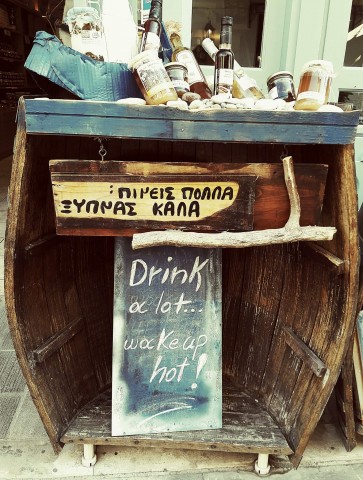 : ΠΙΝΕΙΣ ΠΟΛΛΑ
ΞΥΠΝΑΣ ΚΑΛΑ
Drink
a lot...
wake up
hot!